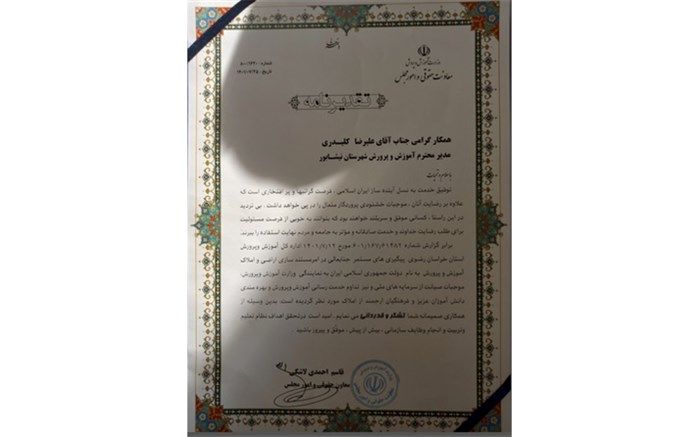 باسمه تعالی
وزارت آموزش و پرورش
معاونت حقوقی و امور مجلس
شماره: ۵۰۰/۱۶۲۰
تاریخ: ۱۴۰۱/۰۷/۲۵
تقدیرنامه
همکار گرامی جناب آقای علیرضا کلیدری
مدیر محترم آموزش و پرورش شهرستان نیشابور
با سلام و تحیات
توفیق خدمت به نسل آینده ساز ایران اسلامی ، فرصت گرانبها و پر افتخاری است که
علاوه بر رضایت آنان ، موجبات خشنودی پروردگار متعال را در پی خواهد داشت . بی تردید
در این راستا ، کسانی موفق و سربلند خواهند بود که بتوانند به خوبی از فرصت مسئولیت
برای طلب رضایت خداوند و خدمت صادقانه و مؤثر به جامعه و مردم نهایت استفاده را ببرند.
برابر گزارش شماره ۶۰۱/۱۶۷/۶۱۳۸۲ مورخ ۱۴۰۱/۷/۱۲ اداره کل آموزش وپرورش
استان خراسان رضوی پیگیری های مستمر جنابعالی در امرمستندسازی اراضی و املاک
آموزش و پرورش به نام دولت جمهوری اسلامی ایران به نمایندگی وزارت آموزش وپرورش،
موجبات صیانت از سرمایه های ملی و نیز تداوم خدمت رسانی آموزش وپرورش و بهره مندی
دانش آموزان عزیز و فرهنگیان ارجمند از املاک مورد نظر گردیده است. بدین وسیله از
همکاری صمیمانه شما تشکر و قدردانی می نمایم . امید است درتحقق اهداف نظام تعلیم
وتربیت و انجام وظایف سازمانی ، بیش از پیش ، موفق و پیروز باشید .
قاسم احمدی لاشکی
معاون حقوقی و امور مجلس